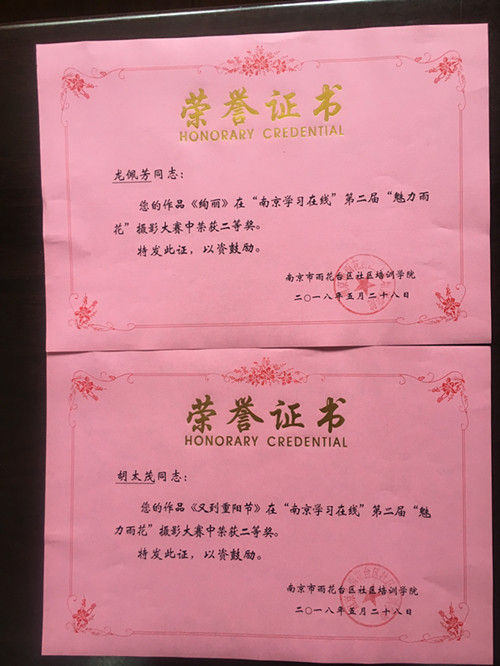 荣誉证书
HONORARY CREDENTIAL
龙佩芳同志：
您的作品《绚丽》在“南京学习在线”第二届“魅力雨
花”摄影大赛中荣获二等奖。
特发此证，以资鼓励。
南京市雨花台区社区培训学院
二〇一八年五月二十八日
荣誉证书
HONORARY CREDENTIAL
胡太茂同志：
您的作品《又到重阳节》在“南京学习在线”第二届“魅
力雨花”摄影大赛中荣获二等奖。
特发此证，以资鼓励。
南京市雨花台区社区培训学院
二〇一八年五月二十八日